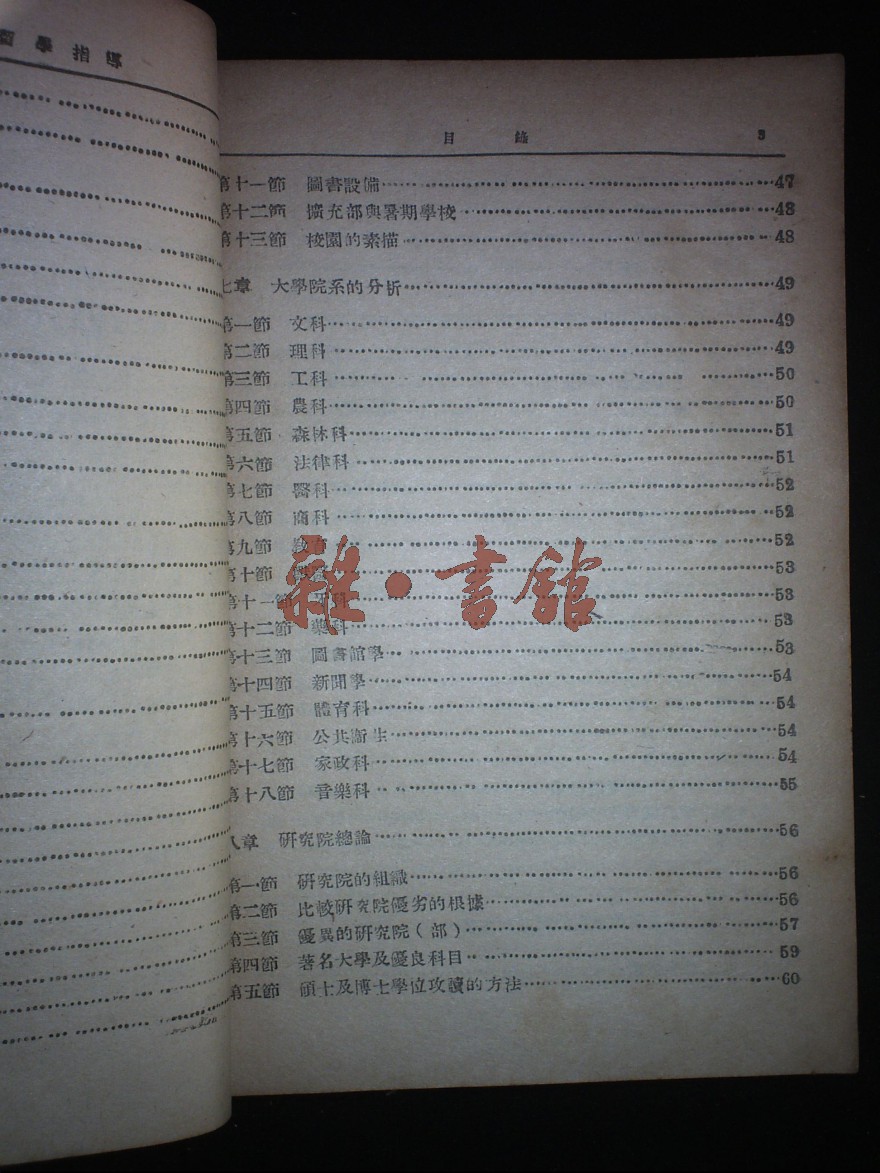 學指導
目錄 3
第十一節 圖書設備 47
第十二節 擴充部與暑期學校 48
第十三節 校園的素描 48
七章 大學院系的分析 49
第一節 文科 49
第二節 理科 49
第三節 工科 50
第四節 農科 50
第五節 森林科 51
第六節 法律科 51
第七節 醫科 52
第八節 商科 52
第九節 教 52
第十節 53
第十一節 牙科 53
第十二節 藥科 53
第十三節 圖書館學 53
第十四節 新聞學 54
第十五節 體育科 54
第十六節 公共衞生 54
第十七節 家政科 54
第十八節 音樂科 55
雜·書館
八章 研究院總論 56
第一節 研究院的組織 56
第二節 比較研究院優劣的根據 56
第三節 優異的研究院(部) 57
第四節 著名大學及優良科目 59
第五節 碩士及博士學位攻讀的方法 60